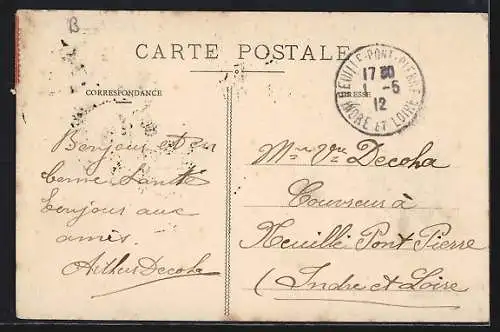 B
CARTE POSTALE
CORRESPONDANCE
ADRESSE
NEUILLÉ-PONT-PIERRE
17 30
1 - 5
12
INDRE ET LOIRE
Bonjour et en
bonne Santé
bonjour aux
amis.
Arthur Decoha
Mr Vve Decoha
Couvreur à
Neuillé Pont Pierre
(Indre et Loire